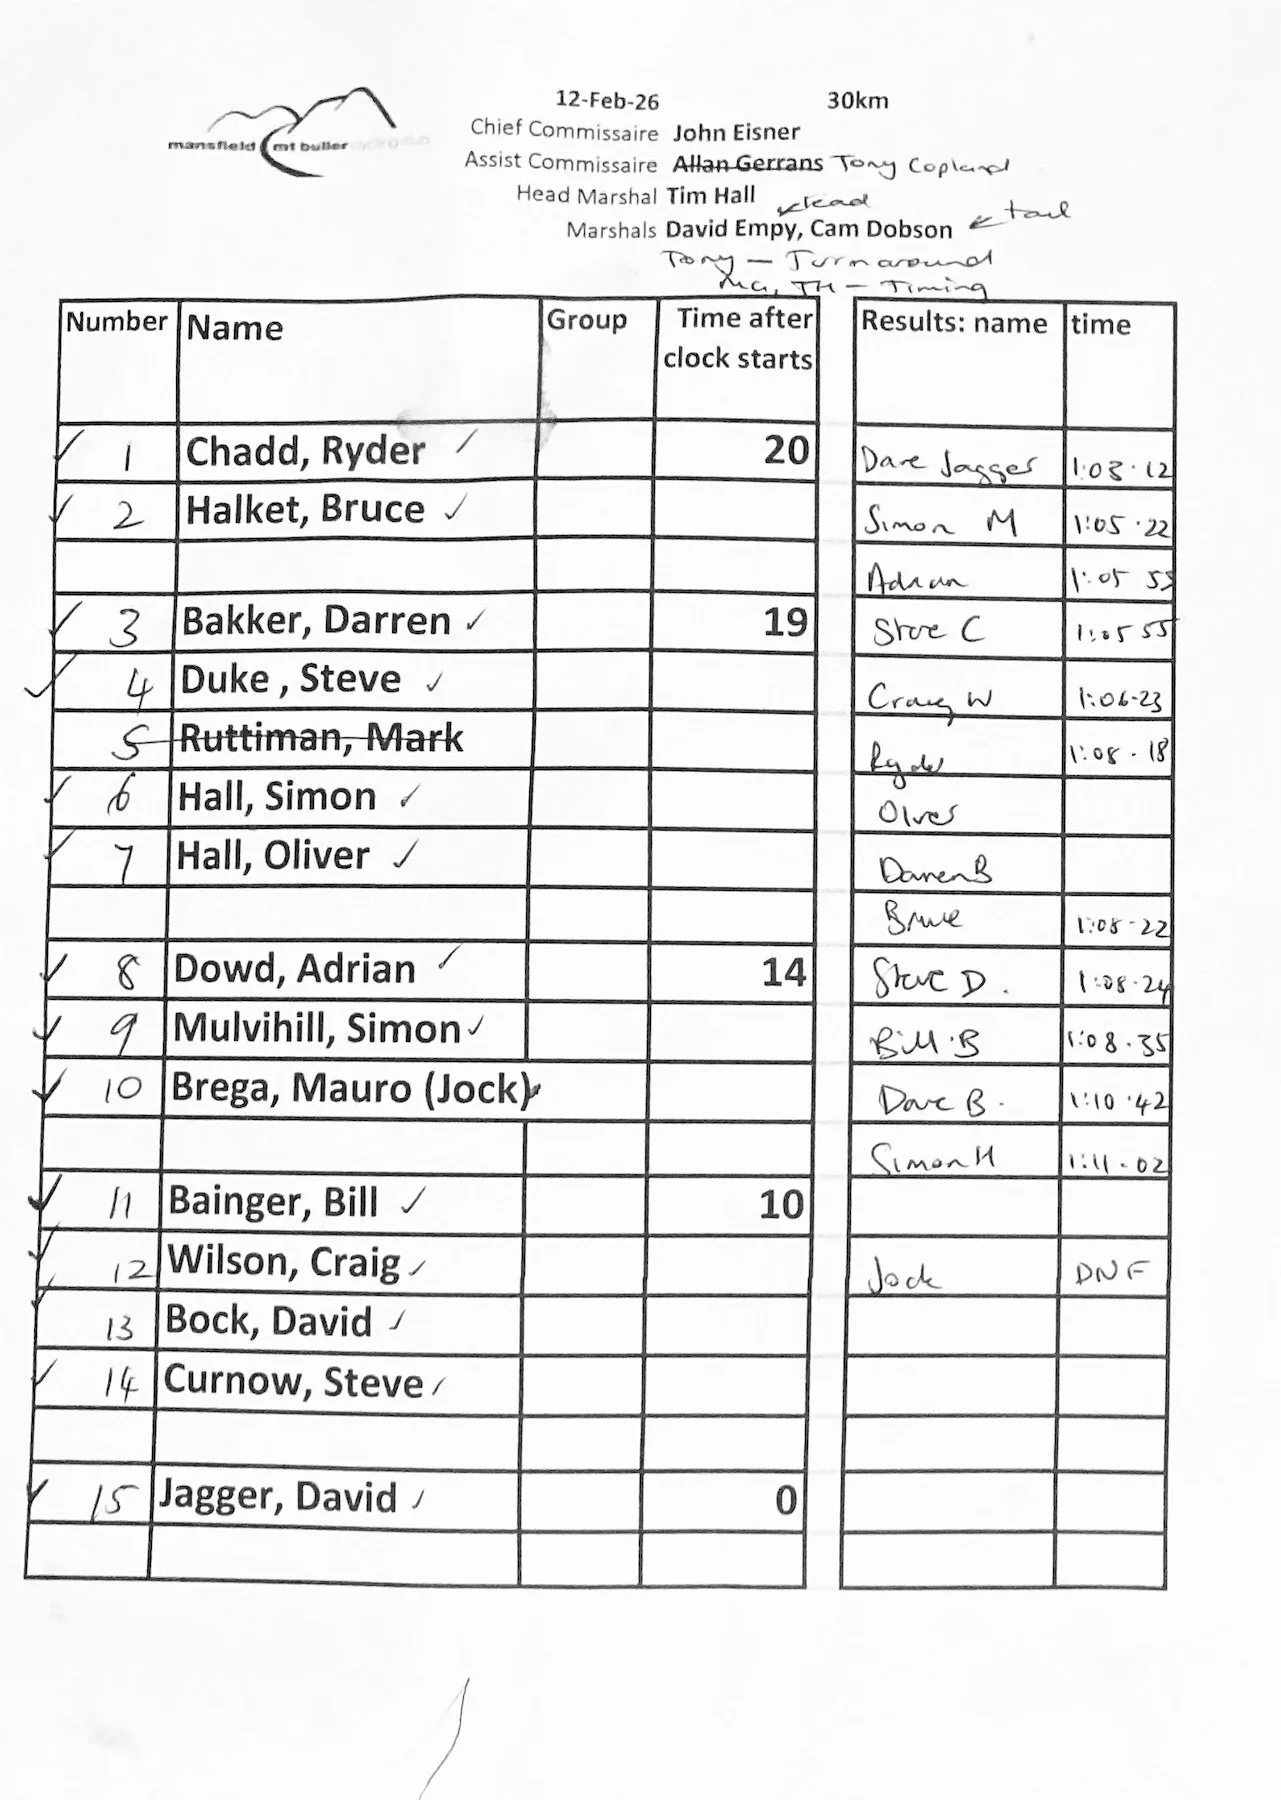 12-Feb-26 30km
mansfield mt buller cycling club
Chief Commissaire John Eisner
Assist Commissaire Allan Gerrans Tony Copland
Head Marshal Tim Hall
lead
Marshals David Empy, Cam Dobson tail
Tony - Turnaround
TH - Timing
Number Name Group Time after clock starts Results: name time
1 Chadd, Ryder 20 Dave Jagger 1:03.12
2 Halket, Bruce Simon M 1:05.22
Adrian 1:05 55
3 Bakker, Darren 19 Steve C 1:05 55
4 Duke , Steve Craig W 1:06.23
5 Ruttiman, Mark Ryder 1:08.18
6 Hall, Simon Oliver
7 Hall, Oliver Darren B
Bruce 1:08.22
8 Dowd, Adrian 14 Steve D. 1:08.24
9 Mulvihill, Simon Bill B 1:08.35
10 Brega, Mauro (Jock) Dave B. 1:10.42
Simon H 1:11.02
11 Bainger, Bill 10
12 Wilson, Craig Jock DNF
13 Bock, David
14 Curnow, Steve
15 Jagger, David 0